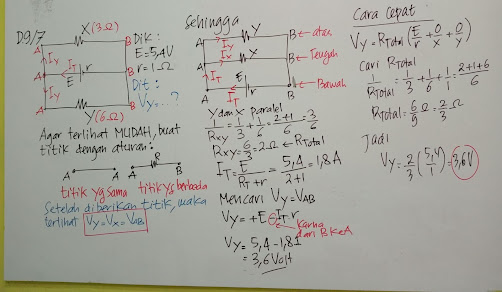 D9/7
X(3Ω)
A
B
Dik:
E=5,4V
r=1Ω
Dit:
Vy=...?
Iy
A
B
IT
E
r
Ix
A
B
Y(6Ω)
Agar terlihat MUDAH, buat
titik dengan aturan:
A
A
A
R
B
titik yg sama
titik yg berbeda
Setelah diberikan titik, maka
terlihat Vy=Vx=VAB
Sehingga
Y
A
Iy
B←atas
X
A
Ix
B←Tengah
IT
E
r
A
IT
B←Bawah
Y dan X paralel
1/Rxy=1/3+1/6=2+1/6=3/6
Rxy=6/3=2Ω←RTotal
IT=E/RT+r=5,4/2+1=1,8A
Mencari Vy=VAB
Vy=+E⊖IT.r
karna
dari B ke A
Vy=5,4-1,8.1
=3,6 Volt
Cara Cepat
Vy=RTotal(E/r+0/x+0/y)
Cari RTotal
1/RTotal=1/3+1/6+1/1=2+1+6/6
RTotal=6/9Ω=2/3Ω
Jadi
Vy=2/3(5,4/1)=3,6V